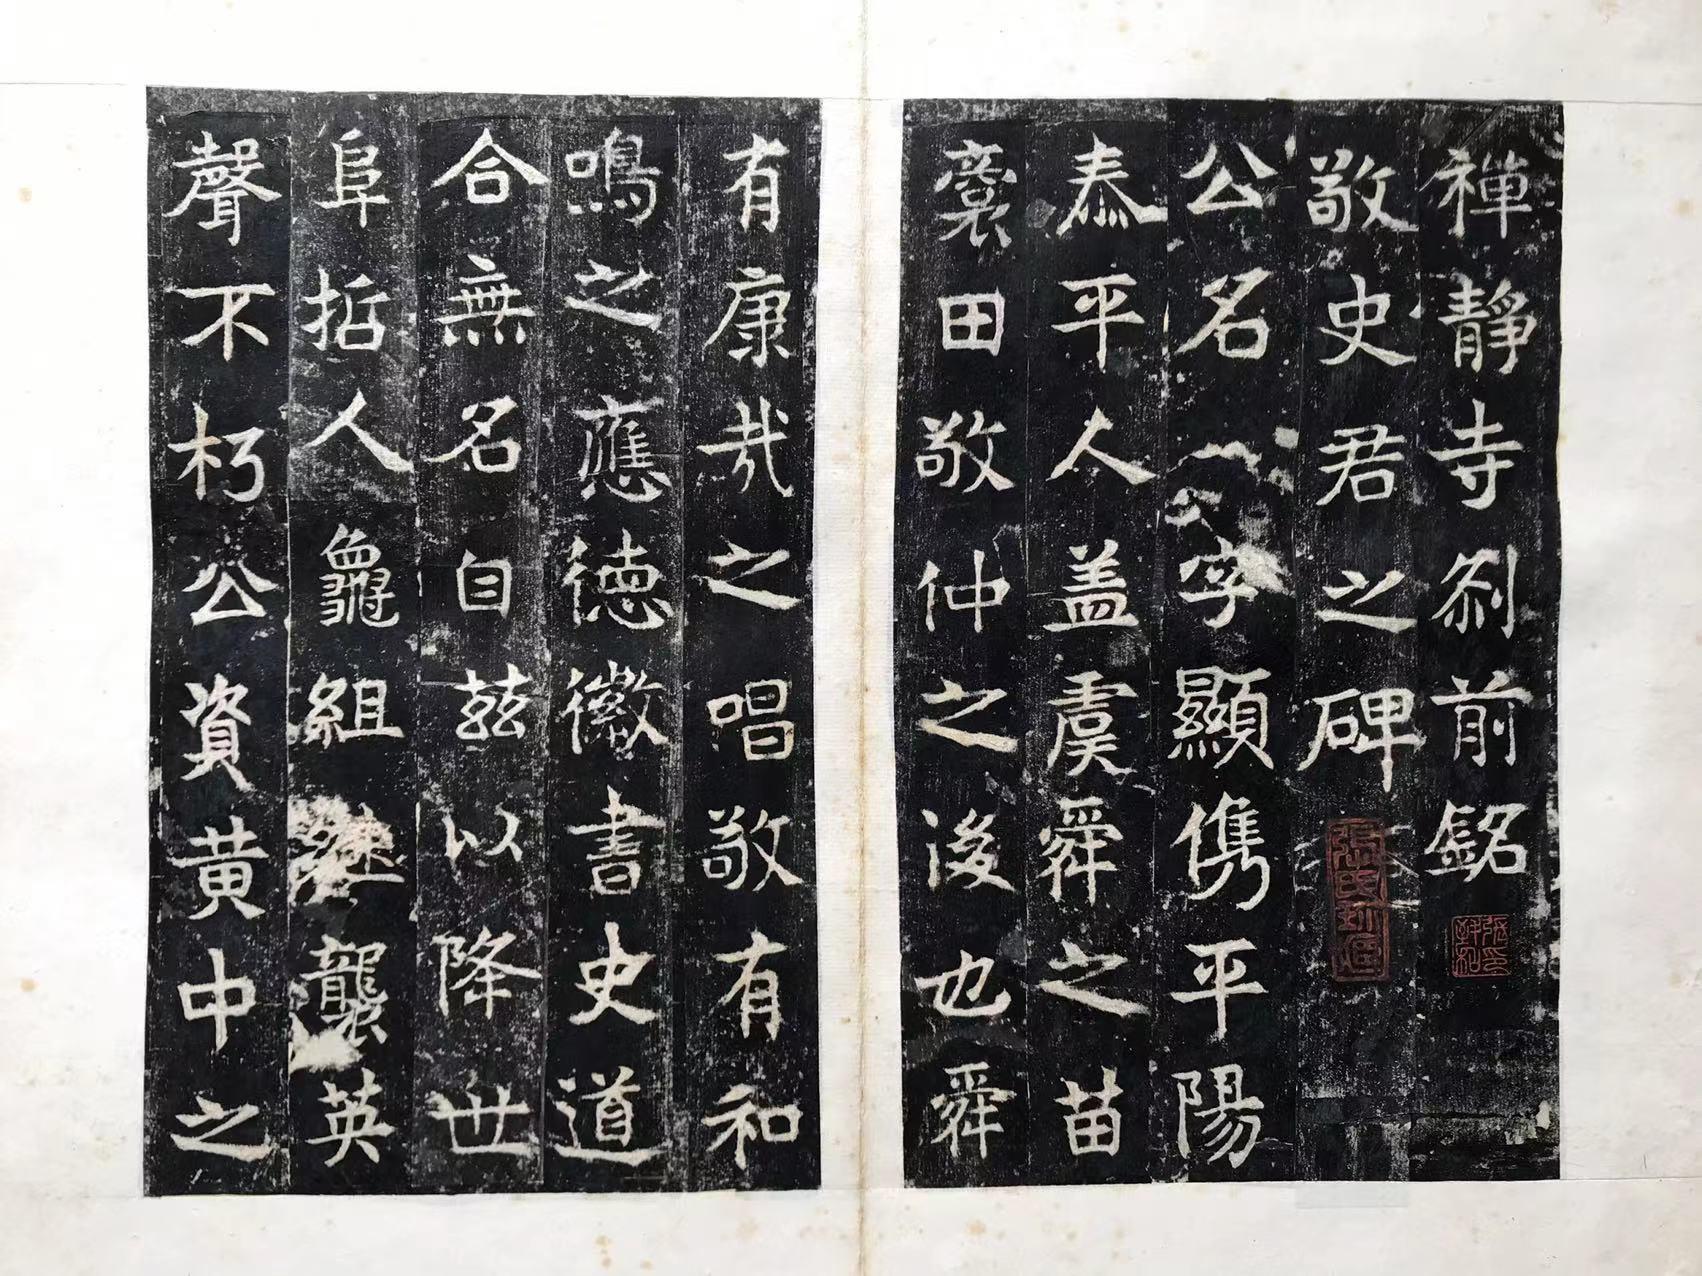 禅靜寺刹前銘
敬史君之碑
公名字顯儁平陽
泰平人盖虞舜之苗
裔田敬仲之後也舜
有康哉之唱敬有和
鳴之應德徽書史道
合無名自茲以降世
阜哲人龜組繼襲英
聲不朽公資黄中之
張氏珍藏